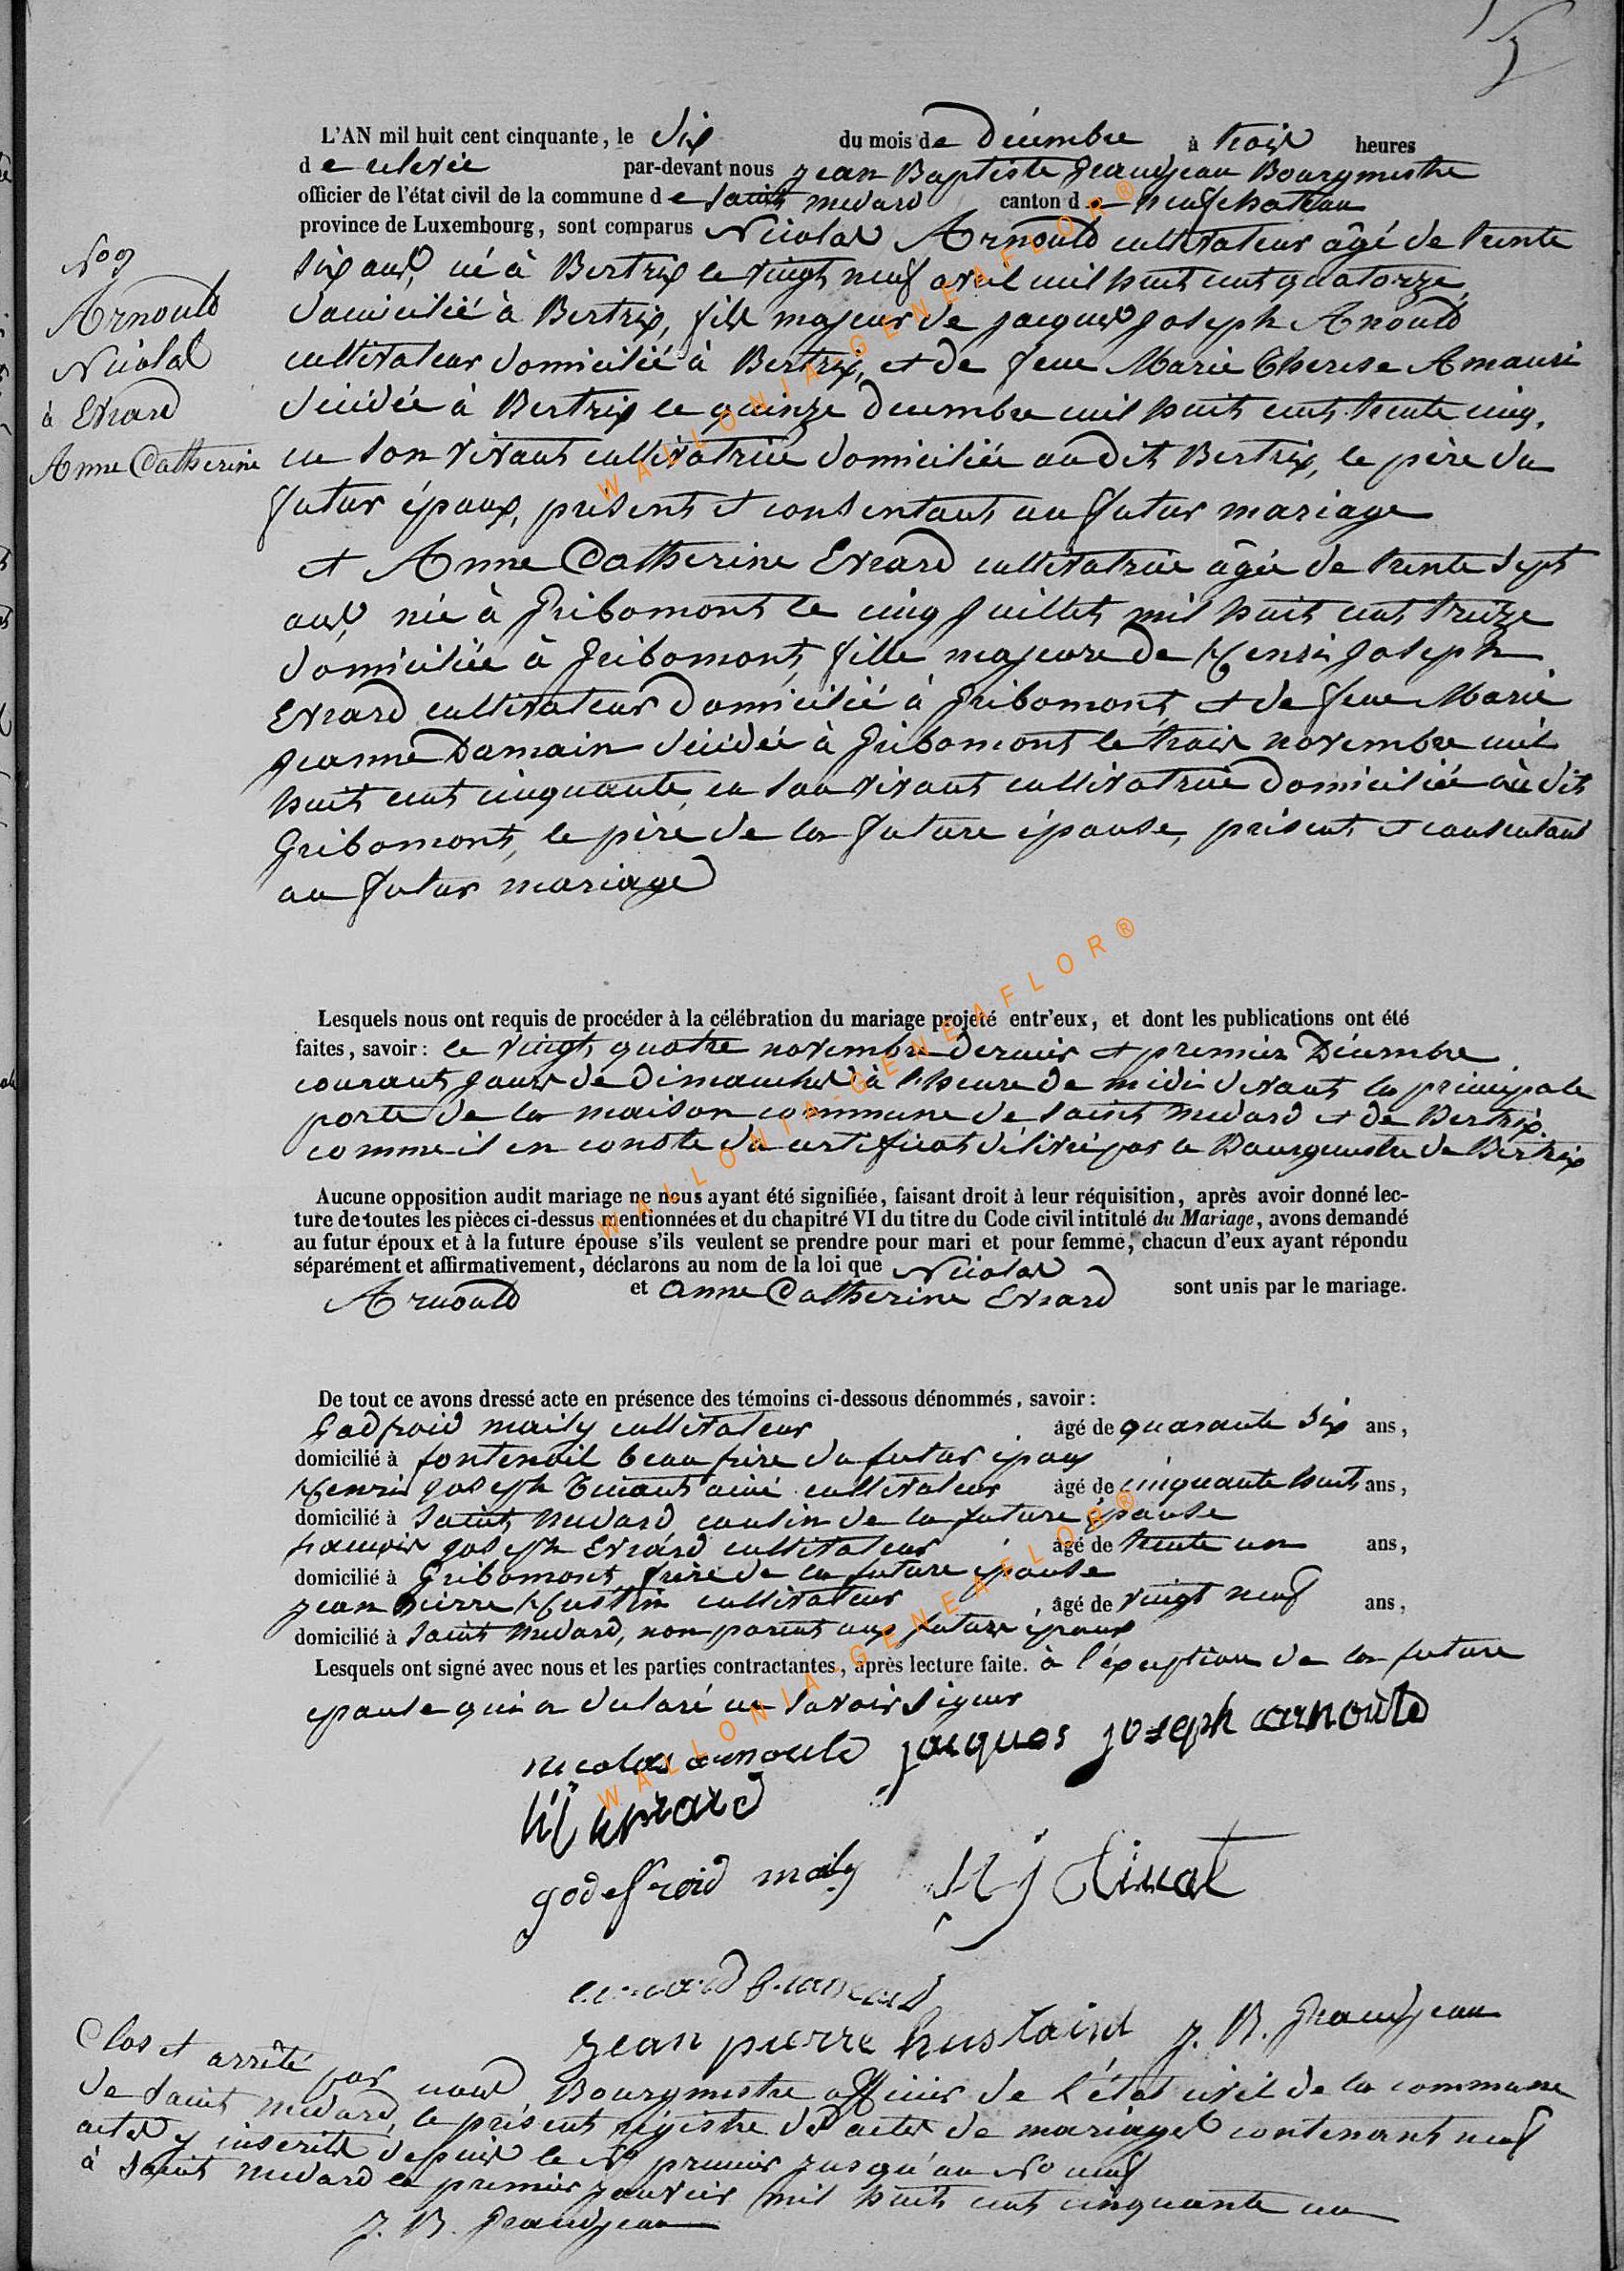 5
L'AN mil huit cent cinquante, le Six du mois de Décembre à trois heures
de relevée par-devant nous Jean Baptiste Grandjean Bourgmestre
officier de l'état civil de la commune de Saint Medard canton de neufchateau
province de Luxembourg, sont comparus Nicolas Arnould cultivateur âgé de trente
Six ans, né à Bertrix le vingt neuf avril mil huit cent quatorze,
domicilié à Bertrix, fils majeur de jacques Joseph Arnould
cultivateur domicilié à Bertrix, et de feue Marie Therese Amauri
décédée à Bertrix le quinze decembre mil huit cent trente cinq,
en son vivant cultivatrice domiciliée audit Bertrix, le père du
futur époux, présent et consentant au futur mariage
No 9
Arnould
Nicolas
à Evrard
Anne Catherine
et Anne Catherine Evrard cultivatrice âgée de trente Sept
ans, née à Gribomont le cinq Juillet mil huit cent treize
domiciliée à Gribomont, fille majeure de Henri Joseph
Evrard cultivateur domicilié à Gribomont, et de feue Marie
Jeanne Damain décédée à Gribomont le trois novembre mil
huit cent cinquante, en son vivant cultivatrice domiciliée audit
Gribomont, le père de la future épouse, présent et consentant
au futur mariage
Lesquels nous ont requis de procéder à la célébration du mariage projeté entr'eux, et dont les publications ont été
faites, savoir : le vingt quatre novembre dernier et premier Décembre
courant jours de dimanches à l'heure de midi devant la principale
porte de la maison commune de Saint Medard et de Bertrix.
comme il en conste du certificat délivré par le Bourgmestre de Bertrix
Aucune opposition audit mariage ne nous ayant été signifiée, faisant droit à leur réquisition, après avoir donné lec-
ture de toutes les pièces ci-dessus mentionnées et du chapitré VI du titre du Code civil intitulé du Mariage, avons demandé
au futur époux et à la future épouse s'ils veulent se prendre pour mari et pour femme, chacun d'eux ayant répondu
séparément et affirmativement, déclarons au nom de la loi que Nicolas
Arnould et Anne Catherine Evrard sont unis par le mariage.
De tout ce avons dressé acte en présence des témoins ci-dessous dénommés, savoir :
Godfroid maily cultivateur âgé de quarante Six ans,
domicilié à fontenoil beau frère du futur époux
Henri Joseph Tinant ainé cultivateur âgé de cinquante huit ans,
domicilié à Saint Medard cousin de la future épouse
francois Joseph Evrard cultivateur âgé de trente un ans,
domicilié à Gribomont frère de la future épouse
Jean Pierre Hustin cultivateur âgé de vingt neuf ans,
domicilié à Saint Medard, non parent aux futurs époux
Lesquels ont signé avec nous et les parties contractantes, après lecture faite. à l'exception de la future
epouse qui a declaré ne savoir signer
nicolas arnould jacques joseph arnould
h j evrard
godeffroid maily h j tinant
evrard francois
Jean pierre hustaint J. B. Grandjean
Clos et arrêté par nous Bourgmestre officier de l'état civil de la commune
de Saint Medard, le présent régistre des actes de mariages contenant neuf
actes y inscrits depuis le No premier jusqu'au No neuf
à Saint Medard le premier janvier mil huit cent cinquante un
J. B. Grandjean
WALLONIA-GENEAFLOR®
WALLONIA-GENEAFLOR®
WALLONIA-GENEAFLOR®